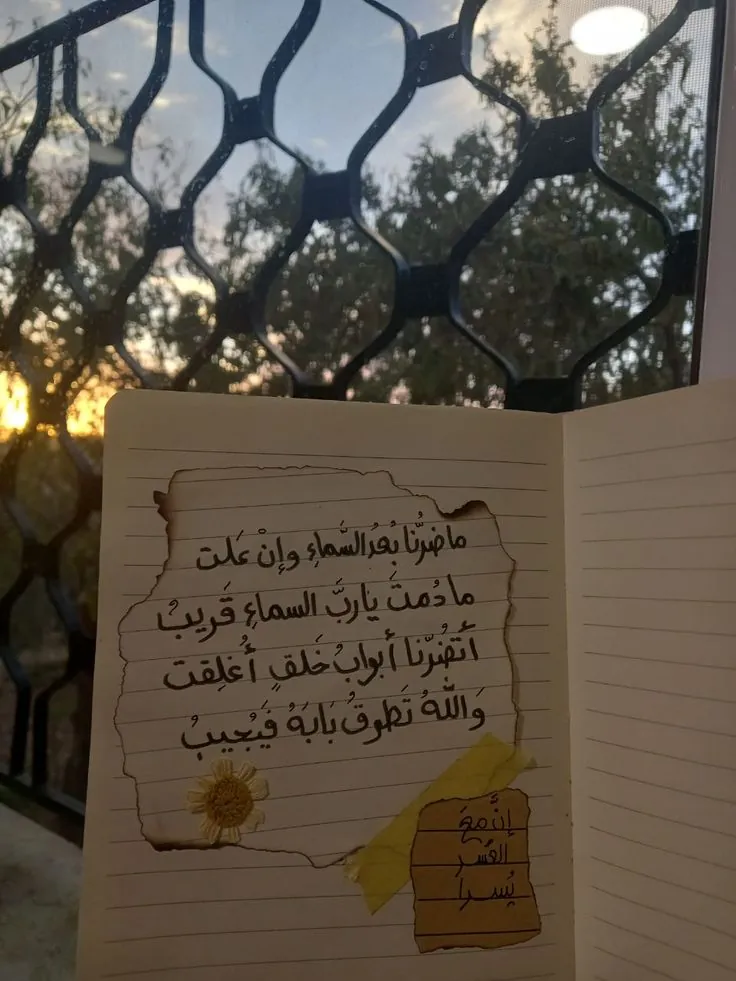 ما ضرُّنا بُعدُ السَّماءِ وإنْ عَلت
مادُمتَ ياربَّ السماءِ قَريبُ
أتضُرّنا أبوابُ خَلقٍ أُغلِقت
وَاللّهُ تَطرقُ بَابَهُ فَيُجيبُ
إنَّ مع
العُسر
يُسرا